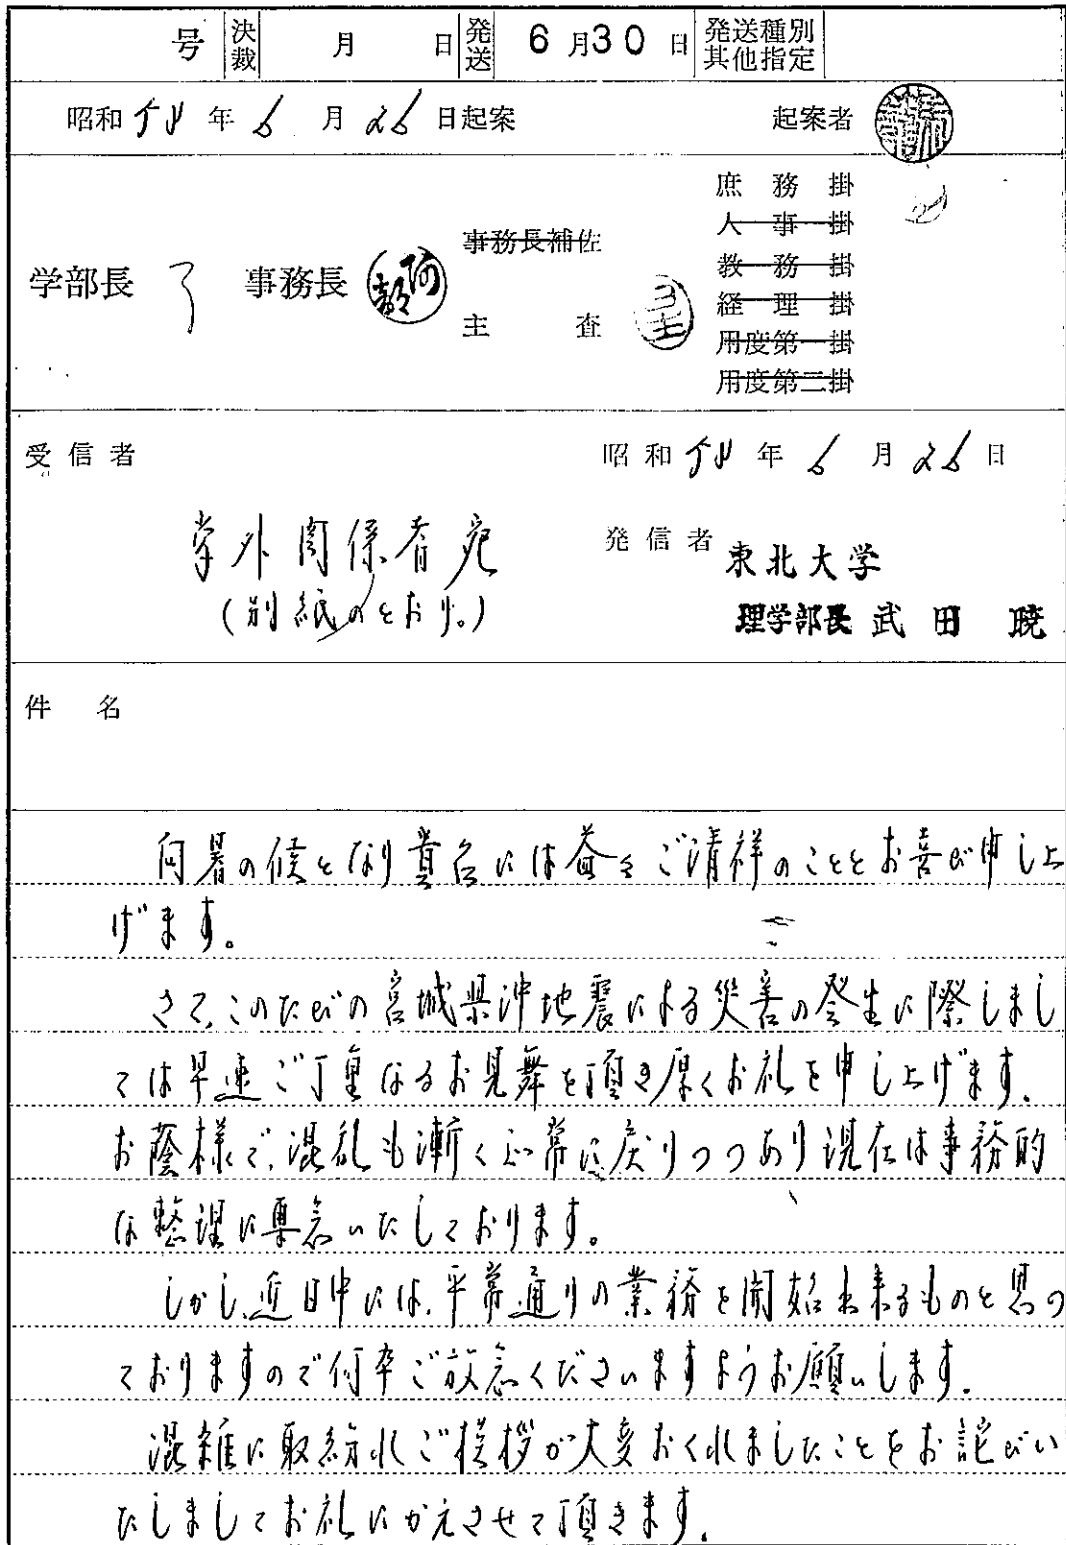 号 決裁 月 日 発送 6月30日 発送種別 其他指定
昭和54年6月26日起案 起案者
庶務掛
人事掛
事務長補佐
教務掛
学部長 了 事務長 阿部
経理掛
主査
用度第一掛
用度第二掛
受信者 昭和54年6月26日
学外関係者宛 発信者 東北大学
(別紙のとおり。) 理学部長 武田 暁
件名
向暑の候となり貴台には益々ご清祥のこととお喜び申し上
げます。
さて、このたびの宮城県沖地震による災害の発生に際しまし
ては早速ご丁重なるお見舞を頂き厚くお礼を申し上げます。
お蔭様で、混乱も漸く正常に戻りつつあり現在は事務的
な整理に専念いたしております。
しかし、近日中には、平常通りの業務を開始出来るものと思っ
ておりますので何卒ご放念くださいますようお願いします。
混雑に取紛れご挨拶が大変おくれましたことをお詫びい
たしましてお礼にかえさせて頂きます。